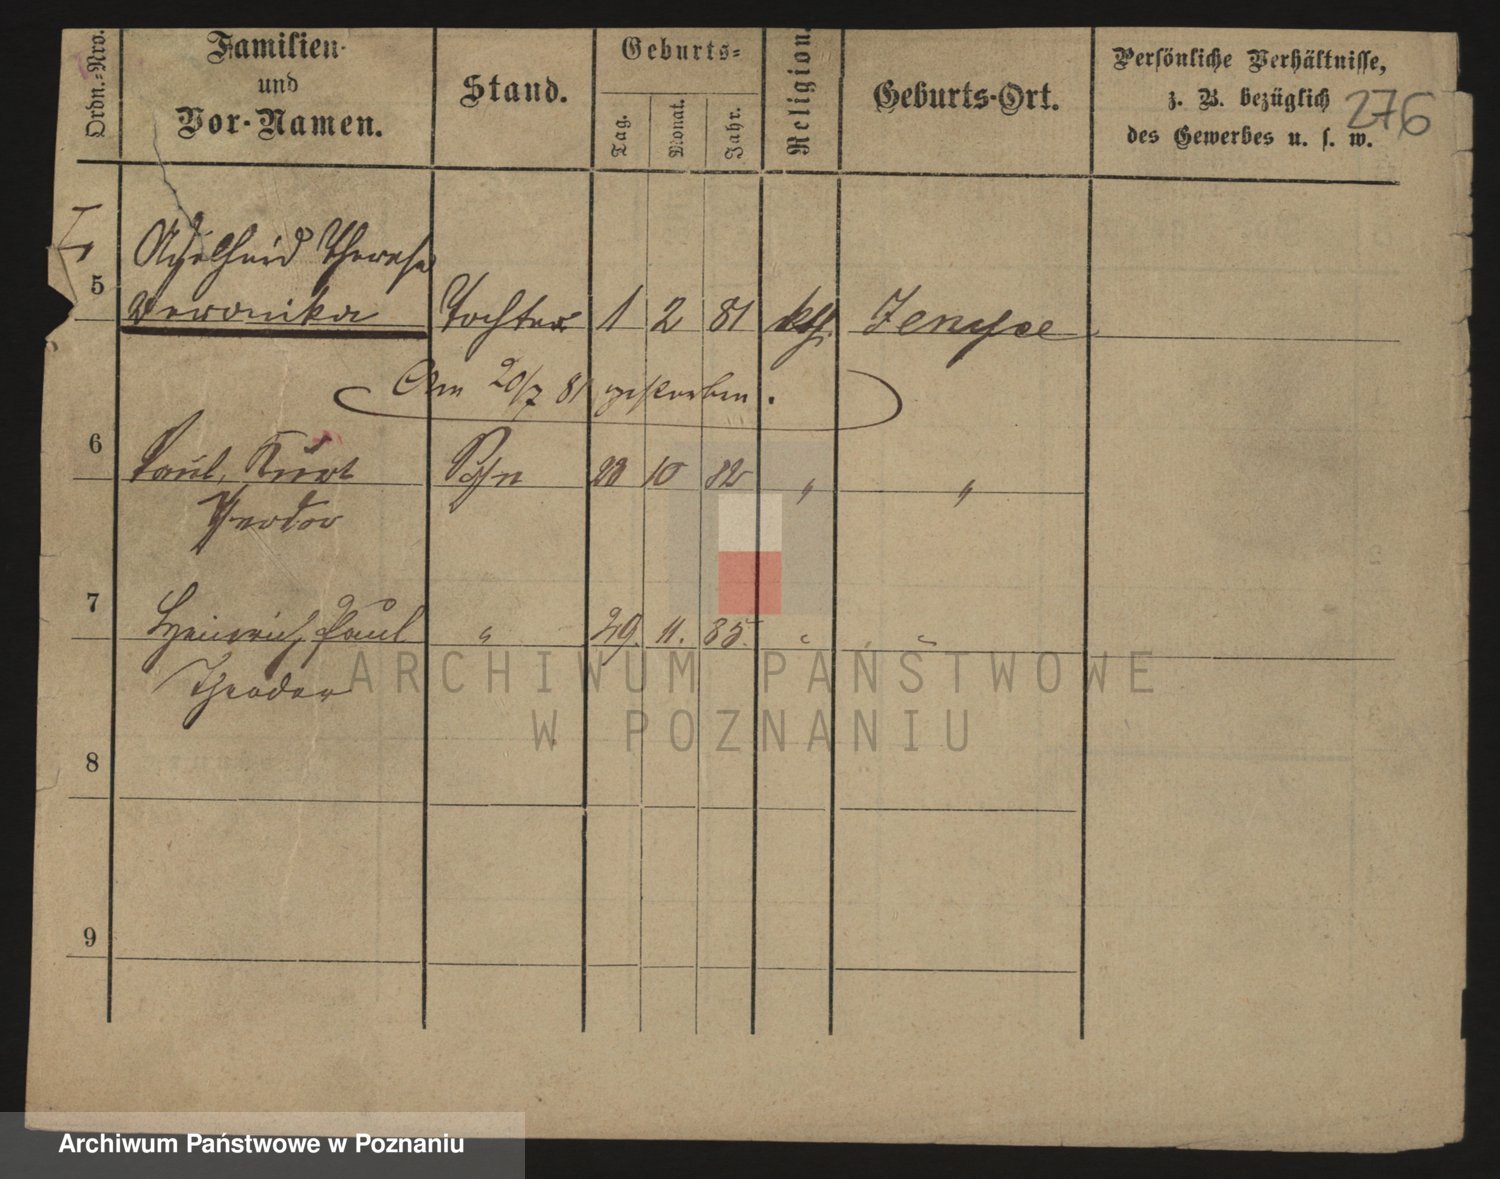 Ordn.-Nro.
Familien-
und
Vor-Namen.
Stand.
Geburts-
Tag.
Monat.
Jahr.
Religion.
Geburts-Ort.
Persönliche Verhältnisse,
z. B. bezüglich
des Gewerbes u. s. w.
276
Adelheid Therese
5 Veronika Tochter 1 2 81 kth. Jersyce
Am 20/7 81 gestorben.
6 Paul, Kurt Sohn 23 10 82 " "
Theodor
7 Heinrich, Paul " 29. 11. 85. " "
Theodor
8
9
ARCHIWUM PAŃSTWOWE
W POZNANIU
Archiwum Państwowe w Poznaniu